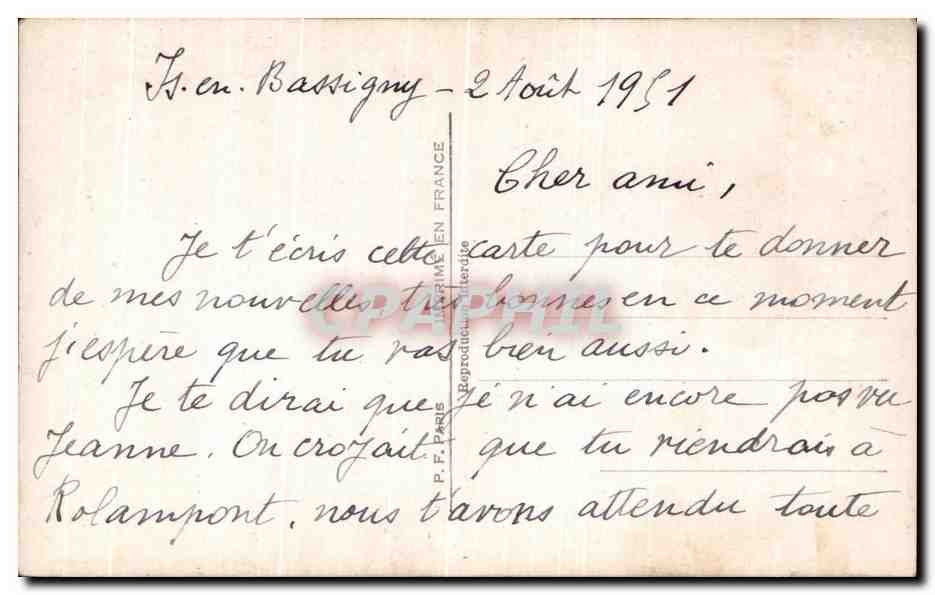 Is. en. Bassigny - 2 Août 1951
Cher ami,
Je t'écris cette carte pour te donner
de mes nouvelles, très bonnes en ce moment
j'espère que tu vas bien aussi.
Je te dirai que je n'ai encore pas vu
Jeanne. On croyait que tu viendrais à
Rolampont, nous t'avons attendu toute
P. F. PARIS
IMPRIMÉ EN FRANCE
Reproduction interdite
CPAPHIL